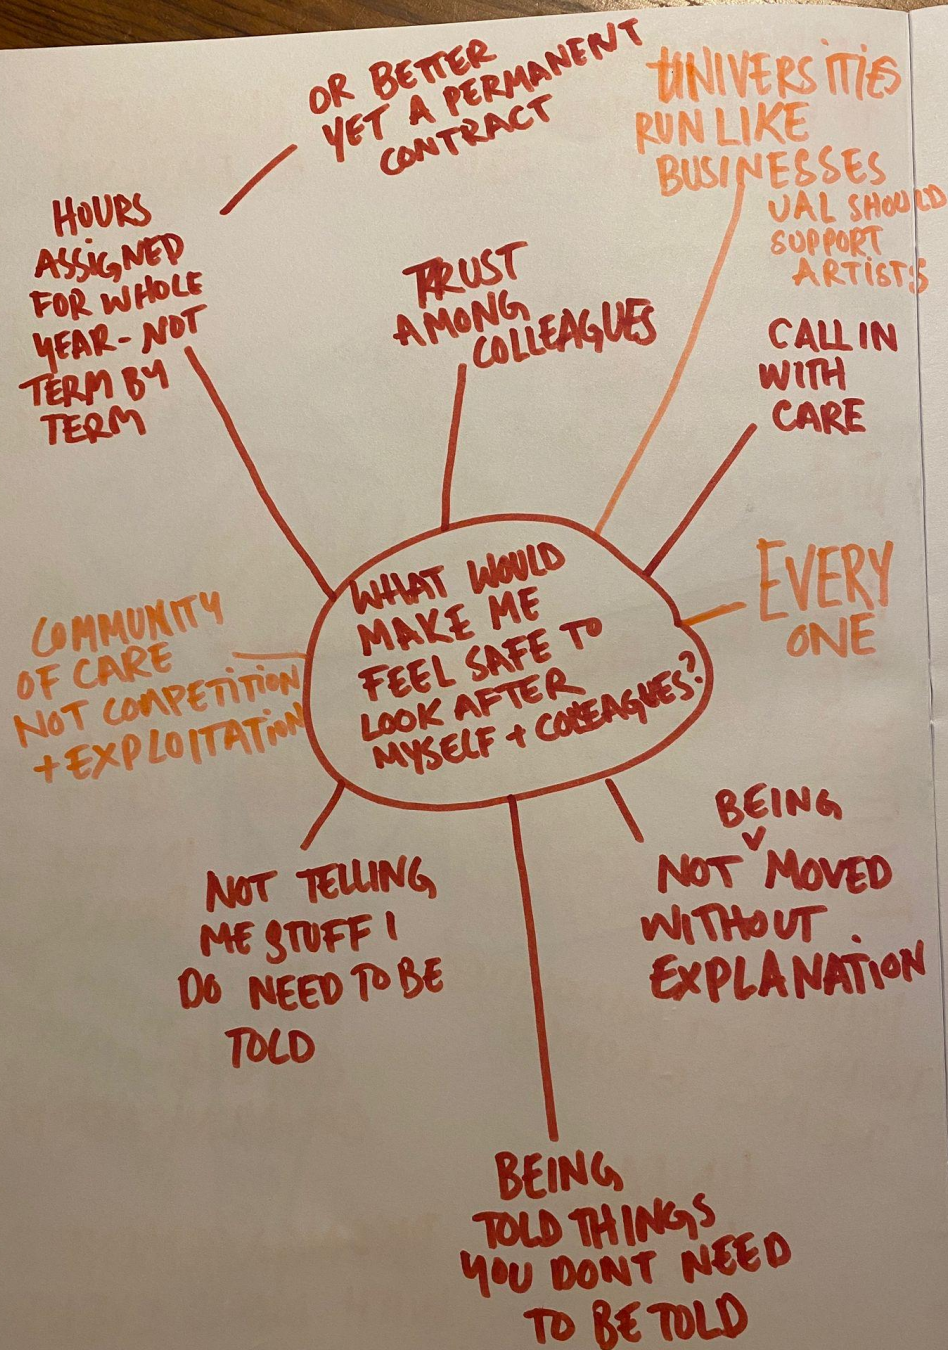 OR BETTER
YET A PERMANENT
CONTRACT
UNIVERSITIES
RUN LIKE
BUSINESSES
UAL SHOULD
SUPPORT
ARTISTS
HOURS
ASSIGNED
FOR WHOLE
YEAR - NOT
TERM BY
TERM
TRUST
AMONG
COLLEAGUES
CALL IN
WITH
CARE
WHAT WOULD
MAKE ME
FEEL SAFE TO
LOOK AFTER
MYSELF + COLEAGUES?
EVERY
ONE
COMMUNITY
OF CARE
NOT COMPETITION
+ EXPLOITATION
NOT TELLING
ME STUFF I
DO NEED TO BE
TOLD
BEING
NOT MOVED
WITHOUT
EXPLANATION
BEING
TOLD THINGS
YOU DONT NEED
TO BE TOLD